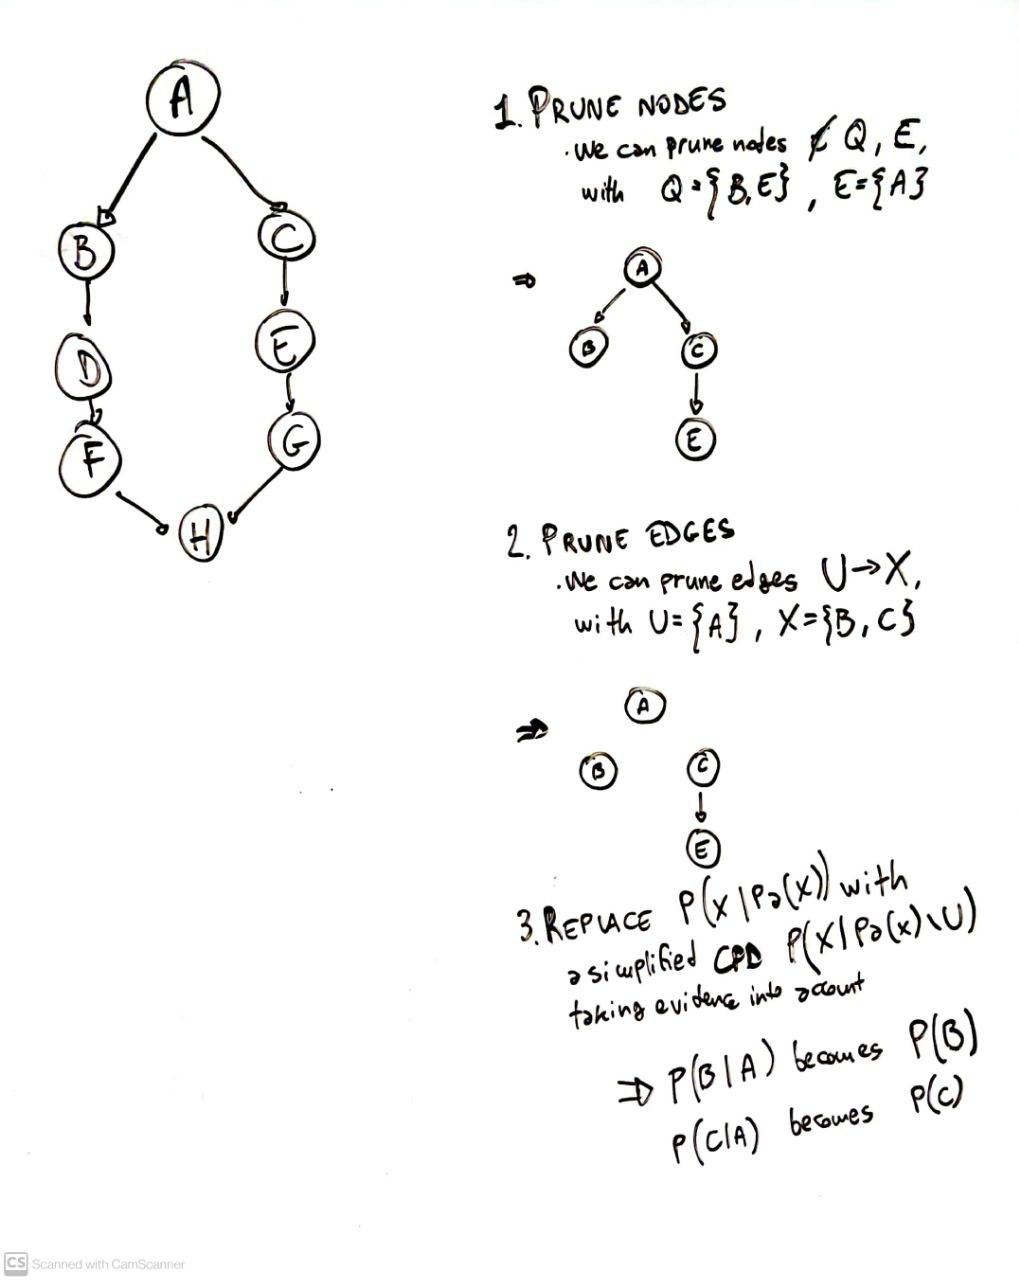 A
B
C
D
E
F
G
H
1. PRUNE NODES
. We can prune nodes ⊄ Q, E,
with Q={B,E}, E={A}
⇒
A
B
C
E
2. PRUNE EDGES
. We can prune edges U→X,
with U={A}, X={B,C}
⇒
A
B
C
E
3. REPLACE P(X|Pa(X)) with
a simplified CPD P(X|Pa(x)\U)
taking evidence into account
⇒ P(B|A) becomes P(B)
P(C|A) becomes P(C)
CS Scanned with CamScanner